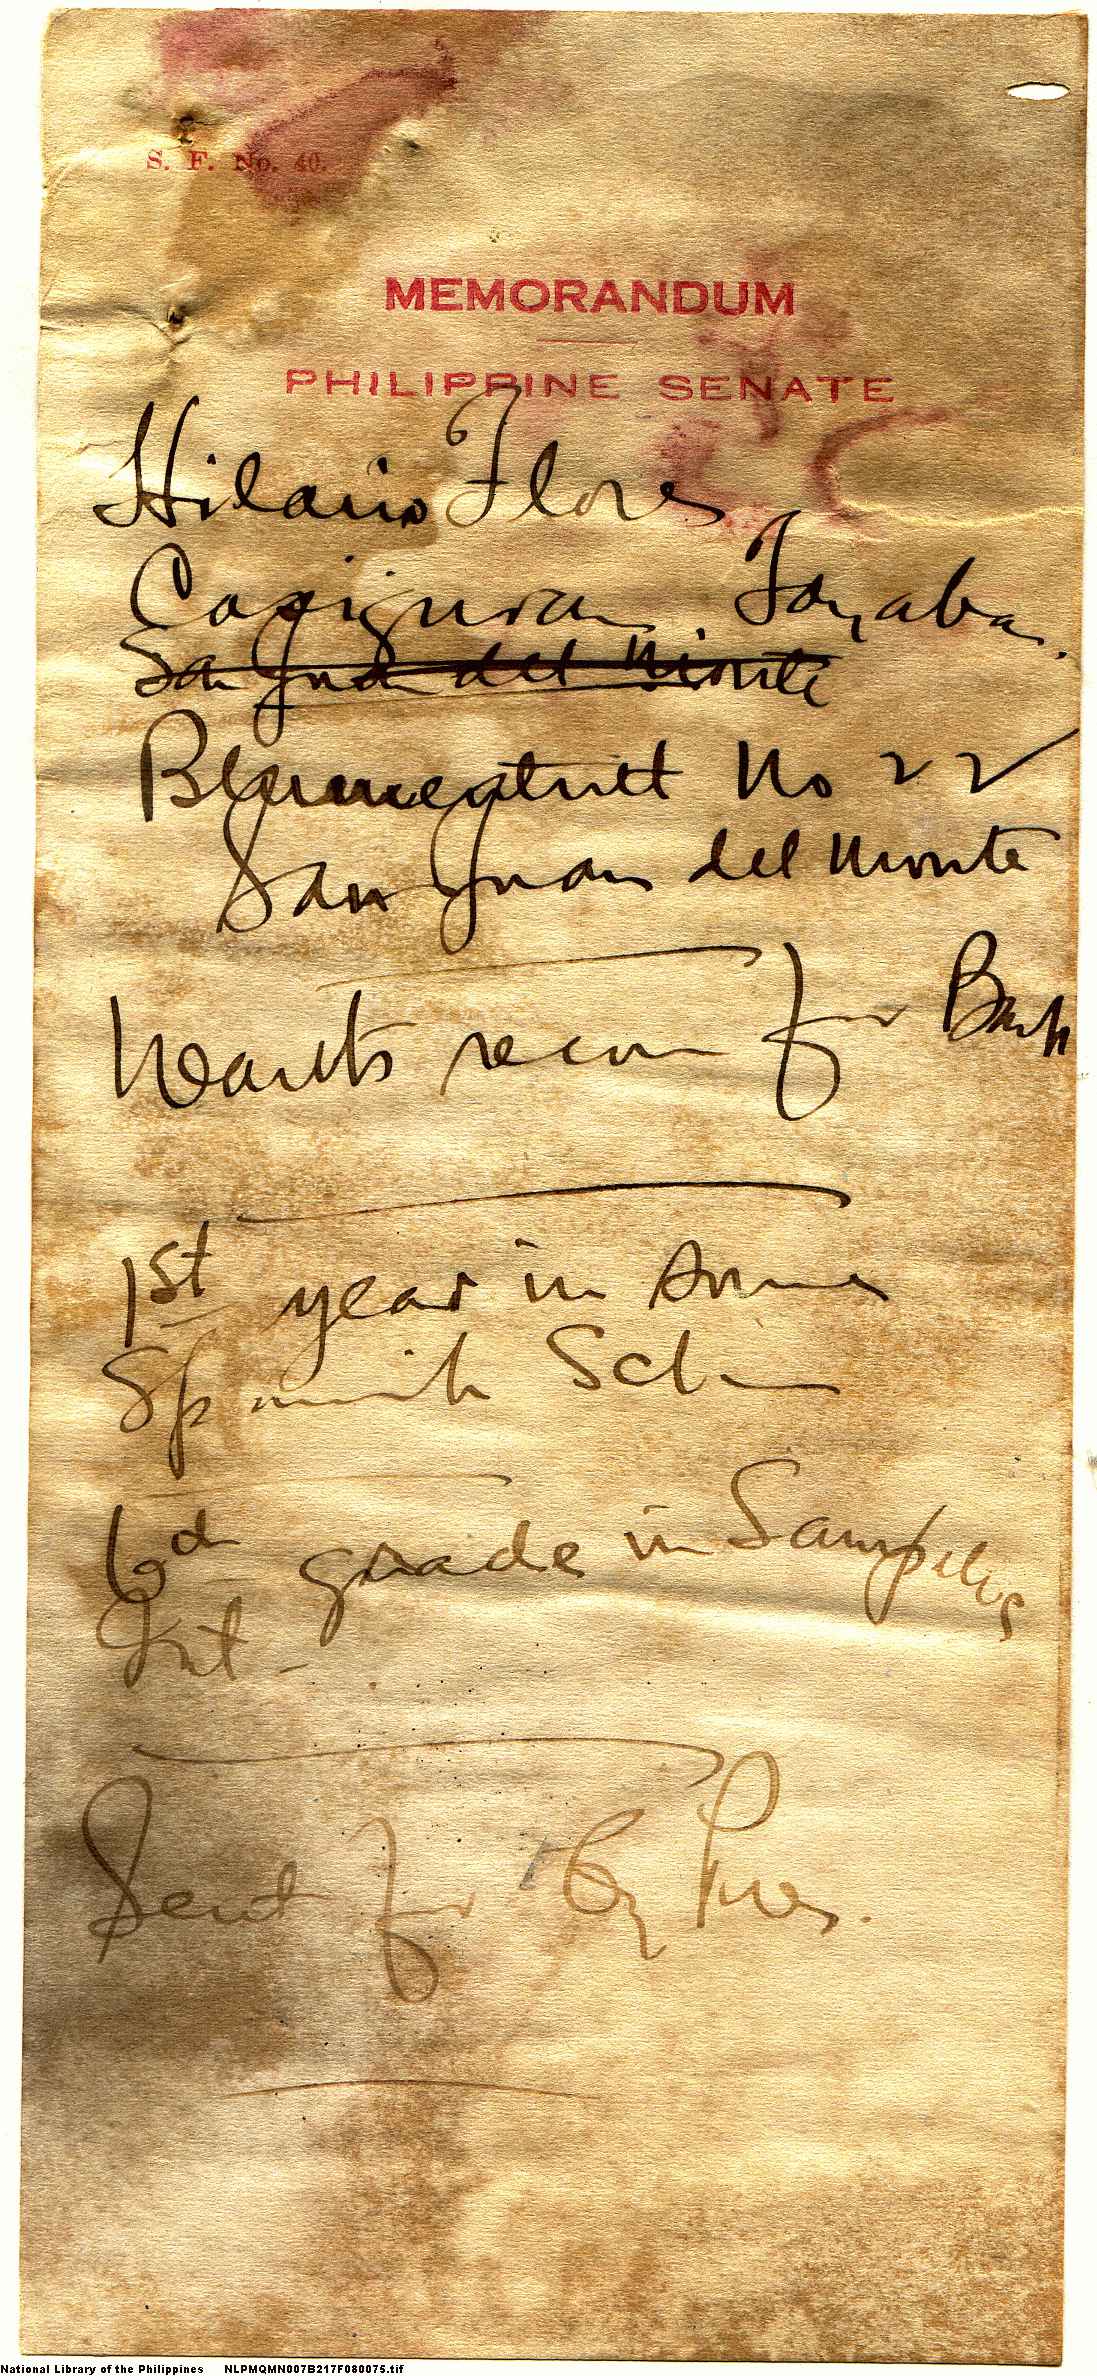 S. F. No. 40.
MEMORANDUM
PHILIPPINE SENATE
Hilario Flores
Casiguran Tayabas.
San Juan del Monte
Blumentritt No 22
San Juan del Monte
Wants recom for Bank
1st year in some
Spanish Sch
6th grade in
Int -
Sent for by Pres.
National Library of the Philippines NLPMQMN007B217F080075.tif